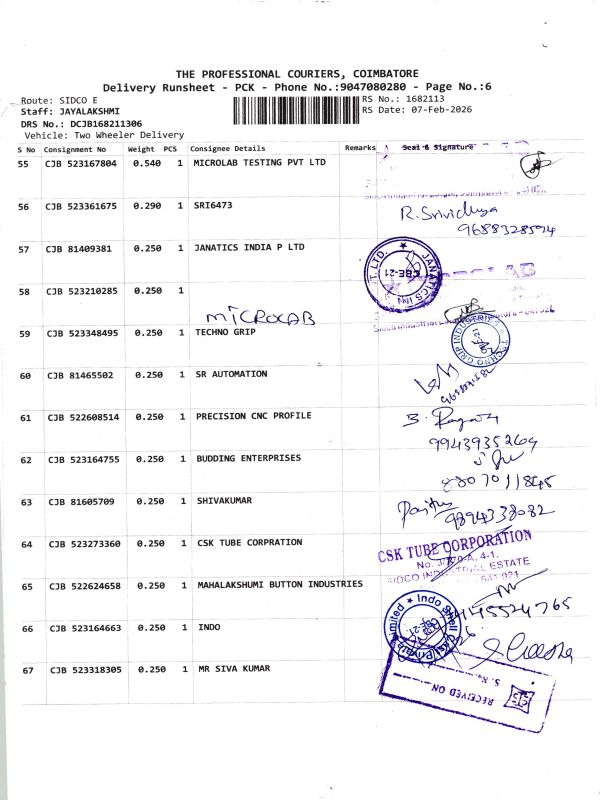 THE PROFESSIONAL COURIERS, COIMBATORE
Delivery Runsheet - PCK - Phone No.:9047080280 - Page No.:6
Route: SIDCO E
RS No.: 1682113
Staff: JAYALAKSHMI
RS Date: 07-Feb-2026
DRS No.: DCJB168211306
Vehicle: Two Wheeler Delivery
S No Consignment No Weight PCS Consignee Details Remarks Seal & Signature
55 CJB 523167804 0.540 1 MICROLAB TESTING PVT LTD
56 CJB 523361675 0.290 1 SRI6473
R. Srividhya
9688328574
57 CJB 81409381 0.250 1 JANATICS INDIA P LTD
JANATICS
CBE-21
58 CJB 523210285 0.250 1
MICROLAB
59 CJB 523348495 0.250 1 TECHNO GRIP
TECHNO GRIP INDUSTRIES
60 CJB 81465502 0.250 1 SR AUTOMATION
61 CJB 522608514 0.250 1 PRECISION CNC PROFILE
9943935264
62 CJB 523164755 0.250 1 BUDDING ENTERPRISES
8807011845
63 CJB 81605709 0.250 1 SHIVAKUMAR
9894338082
64 CJB 523273360 0.250 1 CSK TUBE CORPRATION
CSK TUBE CORPORATION
SIDCO INDUSTRIAL ESTATE
641 021
65 CJB 522624658 0.250 1 MAHALAKSHUMI BUTTON INDUSTRIES
66 CJB 523164663 0.250 1 INDO
Indo Shell Cast Private Limited
CBE-21
67 CJB 523318305 0.250 1 MR SIVA KUMAR
S. No.
RECEIVED ON